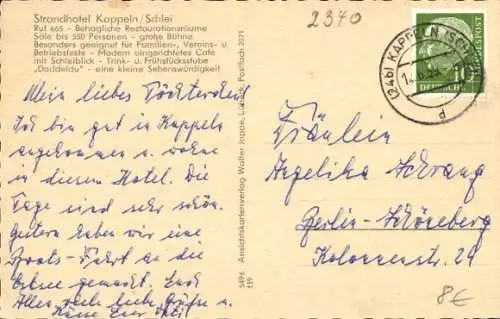 Strandhotel Kappeln / Schlei
Ruf 665 - Behagliche Restaurationsräume
Säle bis 550 Personen - große Bühne
Besonders geeignet für Familien-, Vereins- u.
Betriebsfeste - Modern eingerichtetes Café
mit Schleiblick - Trink- u. Frühstücksstube
"Daddeldu" - eine kleine Sehenswürdigkeit
Mein liebes Töchterchen!
Ich bin gut in Kappeln
angekommen u. wohne
in diesem Hotel. Die
Tage sind sehr schön.
Gestern haben wir eine
Boots-Fahrt an die
Ostsee gemacht. Euch
Allen viele liebe Grüße u.
Küsse Euer
Ansichtskartenverlag Walter Jappe, Postfach 2071
2370
(24b) KAPPELN (SCHLEI)
d
10
DEUTSCHE
Fräulein
Angelika Schrang
Berlin-Schöneberg
Kolonnenstr. 24
8€